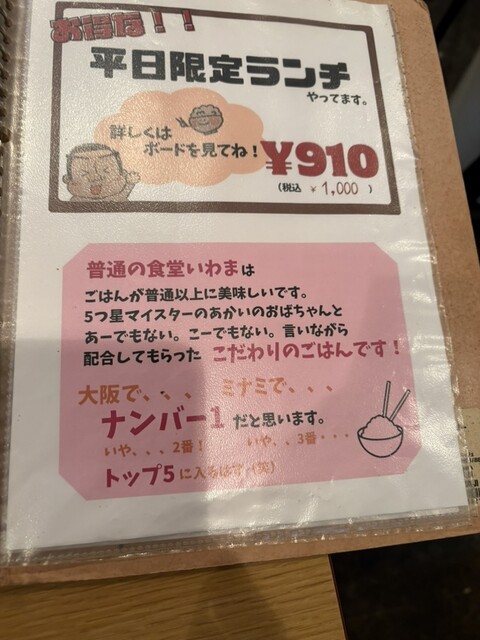 お得な！！
平日限定ランチ
やってます。
詳しくは
ボードを見てね！
¥910
(税込 ¥ 1,000 )
普通の食堂いわまは
ごはんが普通以上に美味しいです。
5つ星マイスターのあかいのおばちゃんと
あーでもない。こーでもない。言いながら
配合してもらった こだわりのごはんです！
大阪で、、、 ミナミで、、、
ナンバー1 だと思います。
いや、、、2番！ いや、、3番・・・
トップ5に入るはず（笑）